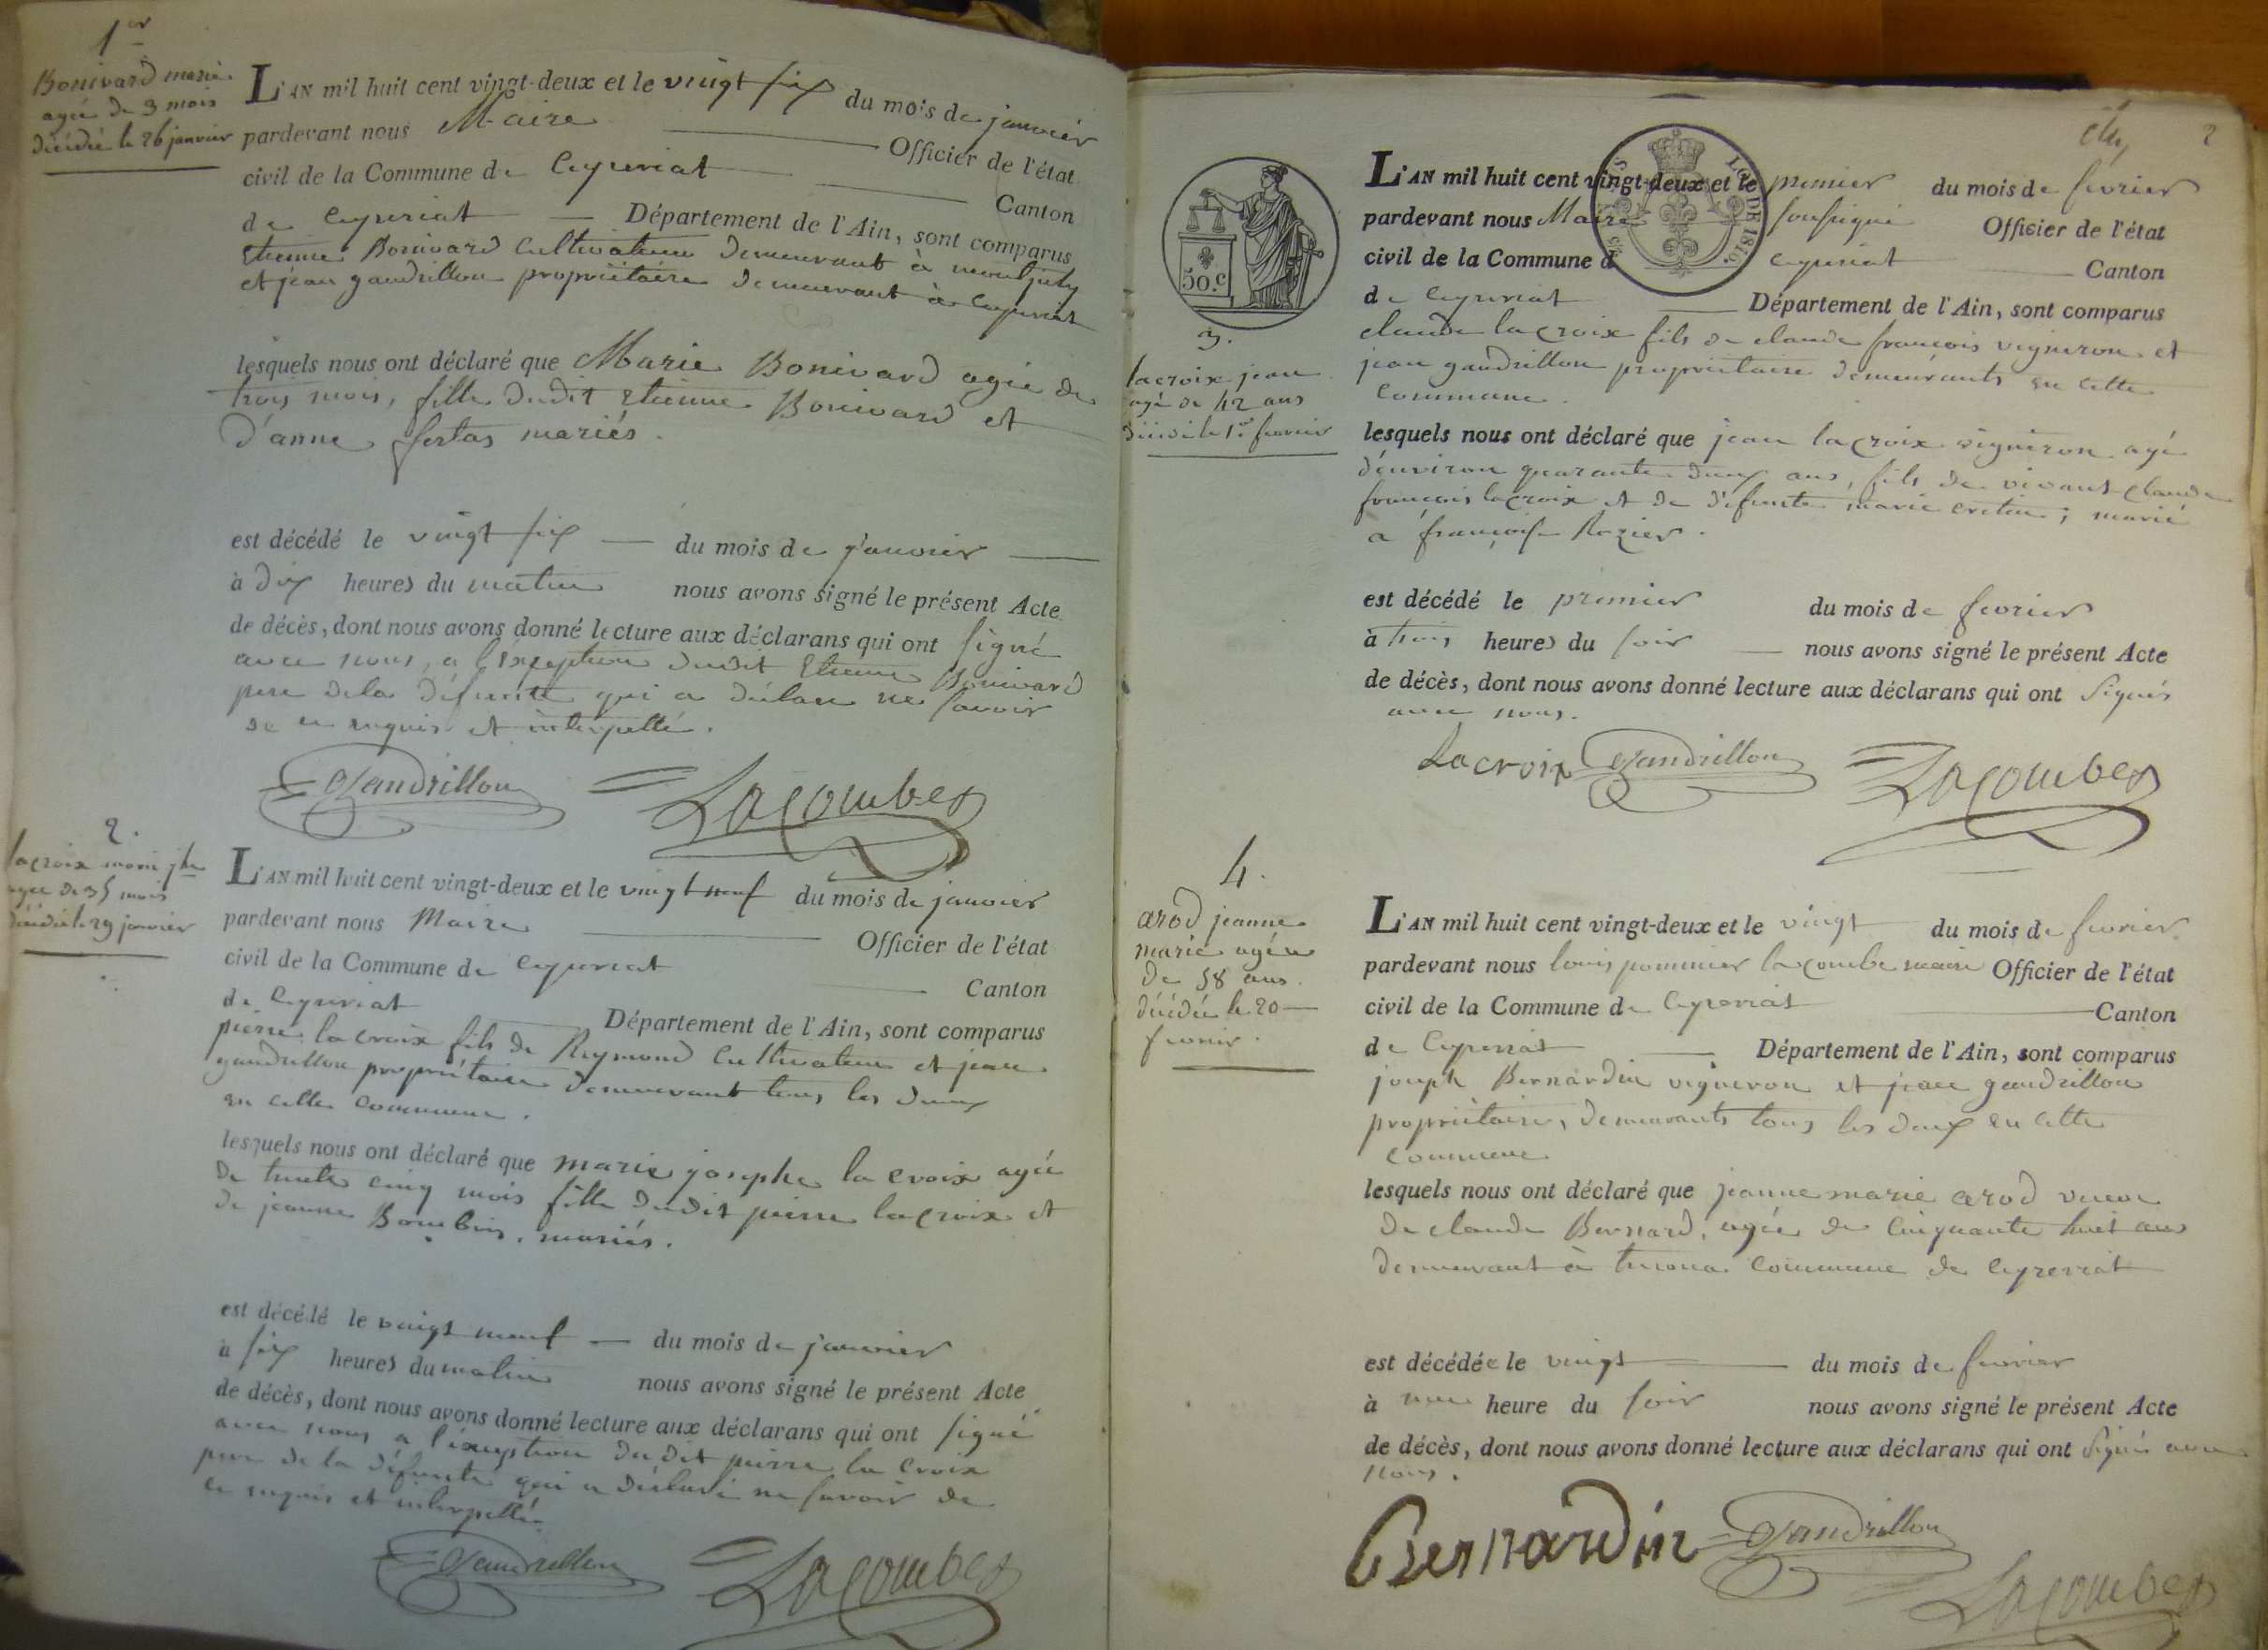 1er
Bonivard marie
agée de 3 mois
décédée le 26 janvier
L'AN mil huit cent vingt-deux et le vingt six du mois de janvier
pardevant nous Maire Officier de l'état
civil de la Commune de Ceyzeriat Canton
de Ceyzeriat Département de l'Ain, sont comparus
Etienne Bonivard Cultivateur demeurant à
et jean gaudrillon propriétaire demeurant à Ceyzeriat
lesquels nous ont déclaré que Marie Bonivard agée de
trois mois, fille dudit Etienne Bonivard et
d'anne mariés.
est décédé le vingt six du mois de janvier
à dix heures du matin nous avons signé le présent Acte
de décès, dont nous avons donné lecture aux déclarans qui ont signé
avec nous, a l'exception dudit Etienne Bonivard
pere dela défunte qui a déclaré ne savoir
de ce requis et interpellé.
Gaudrillon Lacombe
2.
lacroix marie jhe
agée de 35 mois
décédée le 29 janvier
L'AN mil huit cent vingt-deux et le vingt neuf du mois de janvier
pardevant nous Maire Officier de l'état
civil de la Commune de Ceyzeriat Canton
de Ceyzeriat Département de l'Ain, sont comparus
pierre lacroix fils de Reymond Cultivateur et jean
gaudrillon propriétaire demeurant tous les deux
en cette commune.
lesquels nous ont déclaré que marie josephe la croix agée
de trente cinq mois fille dudit pierre lacroix et
de jeanne mariés.
est décédé le vingt neuf du mois de janvier
à six heures du matin nous avons signé le présent Acte
de décès, dont nous avons donné lecture aux déclarans qui ont signé
avec nous a l'exception dudit pierre la croix
pere de la défunte qui a déclaré ne savoir de
ce requis et interpellé.
Gaudrillon Lacombe
2
50.c
3.
lacroix jean
agé de 42 ans
décédé le 1er fevrier
L'AN mil huit cent vingt-deux et le premier du mois de fevrier
pardevant nous Maire soussigné Officier de l'état
civil de la Commune d Ceyzeriat Canton
de Ceyzeriat Département de l'Ain, sont comparus
claude lacroix fils de claude françois vigneron et
jean gaudrillon propriétaire demeurants en cette
commune.
lesquels nous ont déclaré que jean lacroix vigneron agé
d'environ quarante deux ans, fils de vivant claude
françois lacroix et de défunte marie cretin; marié
a françoise Rozier.
est décédé le premier du mois de fevrier
à trois heures du soir nous avons signé le présent Acte
de décès, dont nous avons donné lecture aux déclarans qui ont signés
avec nous.
Lacroix Gaudrillon Lacombe
4.
arod jeanne
marie agée
de 58 ans
décédée le 20
fevrier.
L'AN mil huit cent vingt-deux et le vingt du mois de fevrier
pardevant nous louis pommier lacombe maire Officier de l'état
civil de la Commune de Ceyzeriat Canton
de Ceyzeriat Département de l'Ain, sont comparus
joseph Bernardin vigneron et jean gaudrillon
propriétaire, demeurants tous les deux en cette
commune
lesquels nous ont déclaré que jeanne marie arod veuve
de claude Bernard, agée de cinquante huit ans
demeurant à commune de Ceyzeriat
est décédée le vingt du mois de fevrier
à une heure du soir nous avons signé le présent Acte
de décès, dont nous avons donné lecture aux déclarans qui ont signé avec
nous.
Bernardin Gaudrillon
Lacombe